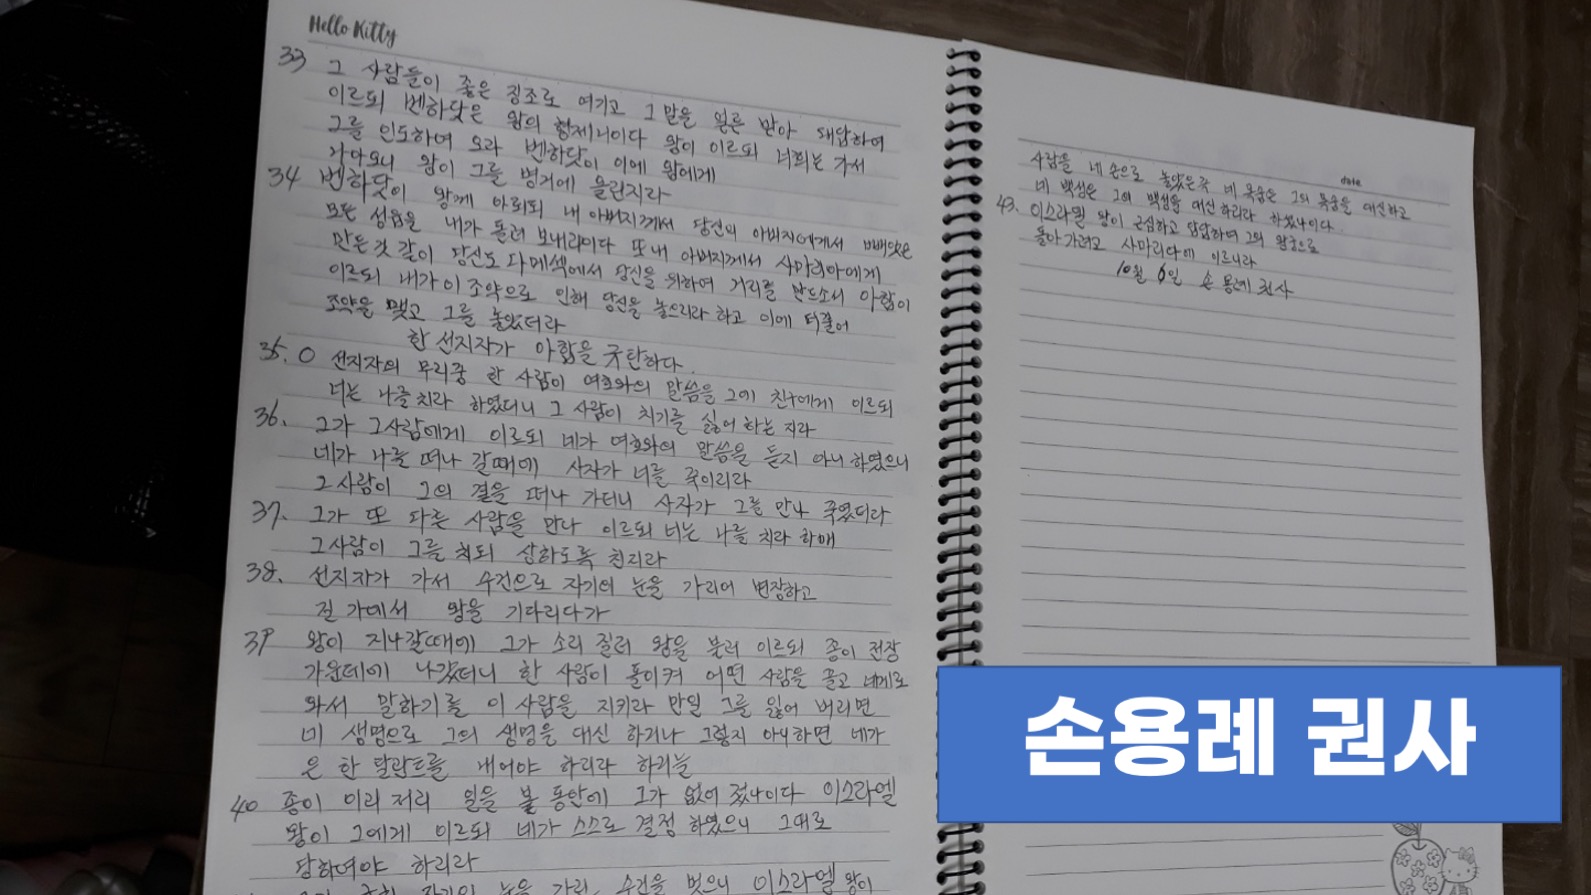 Hello Kitty
33 그 사람들이 좋은 징조로 여기고 그 말을 얼른 받아 대답하여
이르되 벤하닷은 왕의 형제니이다 왕이 이르되 너희는 가서
그를 인도하여 오라 벤하닷이 이에 왕에게
나아오니 왕이 그를 병거에 올린지라
34 벤하닷이 왕께 아뢰되 내 아버지께서 당신의 아버지에게서 빼앗은
모든 성읍을 내가 돌려 보내리이다 또 내 아버지께서 사마리아에게
만든것 같이 당신도 다메섹에서 당신을 위하여 거리를 만드소서 아합이
이르되 내가 이 조약으로 인해 당신을 놓으리라 하고 이에 더불어
조약을 맺고 그를 놓았더라
한 선지자가 아합을 규탄하다.
35. ○ 선지자의 무리중 한 사람이 여호와의 말씀을 그의 친구에게 이르되
너는 나를 치라 하였더니 그 사람이 치기를 싫어 하는 지라
36. 그가 그사람에게 이르되 네가 여호와의 말씀을 듣지 아니 하였으니
네가 나를 떠나 갈때에 사자가 너를 죽이리라
그사람이 그의 곁을 떠나 가더니 사자가 그를 만나 죽였더라
37. 그가 또 다른 사람을 만나 이르되 너는 나를 치라 하매
그사람이 그를 치되 상하도록 친지라
38. 선지자가 가서 수건으로 자기의 눈을 가리어 변장하고
길 가에서 왕을 기다리다가
39 왕이 지나갈때에 그가 소리 질러 왕을 불러 이르되 종이 전장
가운데에 나갔더니 한 사람이 돌이켜 어떤 사람을 끌고 내게로
와서 말하기를 이 사람을 지키라 만일 그를 잃어 버리면
네 생명으로 그의 생명을 대신 하거나 그렇지 아니하면 네가
은 한 달란트를 내어야 하리라 하리늘
40 종이 이리 저리 일을 볼 동안에 그가 없어 졌나이다 이스라엘
왕이 그에게 이르되 네가 스스로 결정 하였으니 그대로
당하여야 하리라
자기의 눈을 가린 수건을 벗으니 이스라엘 왕이
date
사람을 네 손으로 놓았은즉 네 목숨은 그의 목숨을 대신하고
네 백성은 그의 백성을 대신하리라 하셨나이다.
43. 이스라엘 왕이 근심하고 답답하여 그의 왕궁으로
돌아가려고 사마리다에 이르니라
10월 6일 손 용례 권사
손용례 권사